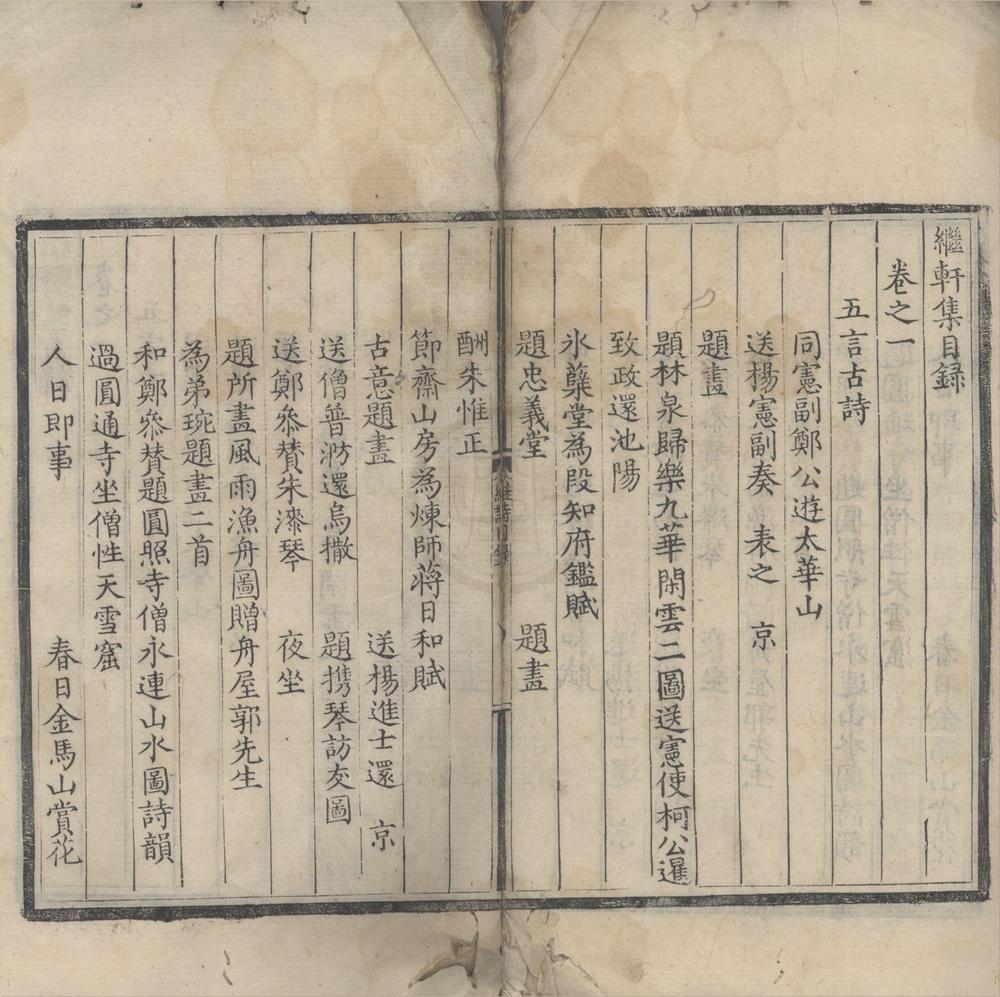 繼軒集目録
卷之一
五言古詩
同憲副鄭公遊太華山
送楊憲副奏　表之　京
題畫
題林泉歸樂九華閑雲二圖送憲使柯公暹
致政還池陽
氷蘗堂為段知府鑑賦
題忠義堂　題畫
繼詩目録
酬朱惟正
節齋山房為煉師蔣日和賦
古意題畫　送楊進士還　京
送僧普滂還烏撒　題携琴訪友圖
送鄭叅賛朱漆琴　夜坐
題所畫風雨漁舟圖贈舟屋郭先生
為弟琬題畫二首
和鄭叅賛題圓照寺僧永連山水圖詩韻
過圓通寺坐僧性天雪窟
人日即事　春日金馬山賞花